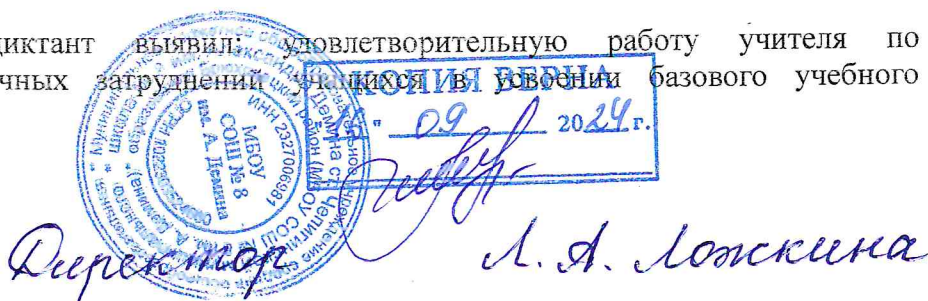 диктант выявил: удовлетворительную работу учителя по
чных затруднений учащихся в усвоении базового учебного
КОПИЯ ВЕРНА
" 09 2024 г.
ИНН 2327006981
МБОУ
СОШ № 8
им. А. Демина
Директор Л. А. Ложкина